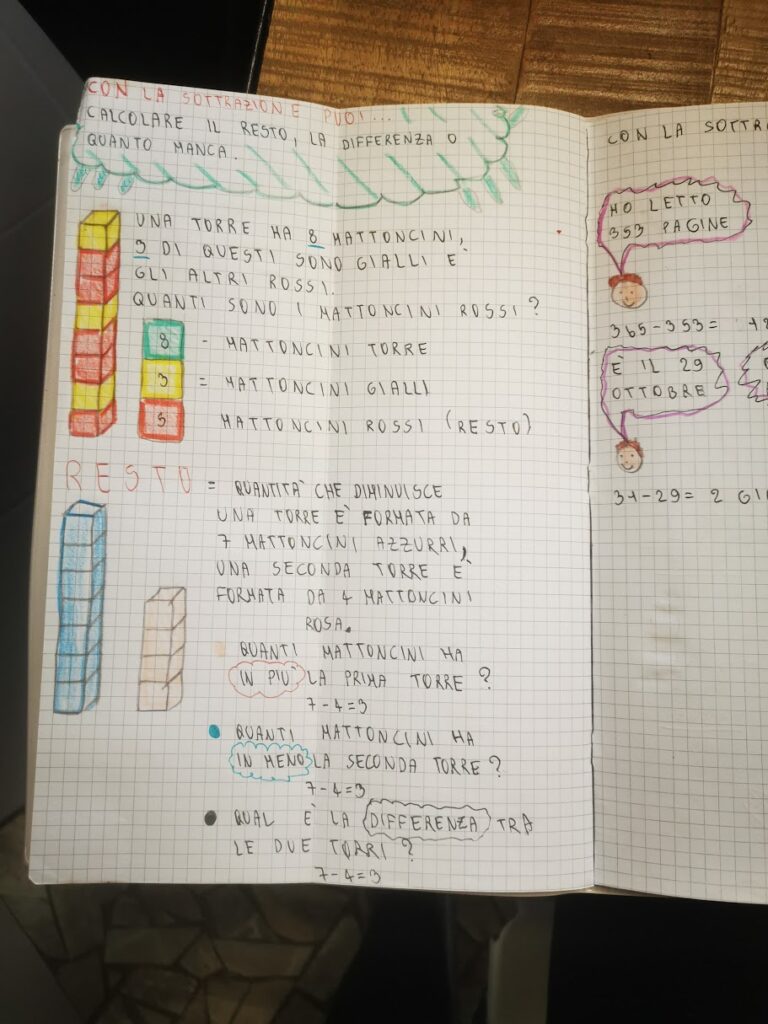 CON LA SOTTRAZIONE PUOI...
CALCOLARE IL RESTO, LA DIFFERENZA O
QUANTO MANCA.
UNA TORRE HA 8 MATTONCINI,
3 DI QUESTI SONO GIALLI E'
GLI ALTRI ROSSI.
QUANTI SONO I MATTONCINI ROSSI?
8 - MATTONCINI TORRE
3 = MATTONCINI GIALLI
5 MATTONCINI ROSSI (RESTO)
RESTO = QUANTITÀ CHE DIMINUISCE
UNA TORRE È FORMATA DA
7 MATTONCINI AZZURRI,
UNA SECONDA TORRE È
FORMATA DA 4 MATTONCINI
ROSA.
QUANTI MATTONCINI HA
IN PIÙ LA PRIMA TORRE?
7-4=3
QUANTI MATTONCINI HA
IN MENO LA SECONDA TORRE?
7-4=3
QUAL È LA DIFFERENZA TRA
LE DUE TORRI?
7-4=3
CON LA SOTTRA
HO LETTO
353 PAGINE
365-353=
È IL 29
OTTOBRE
31-29= 2